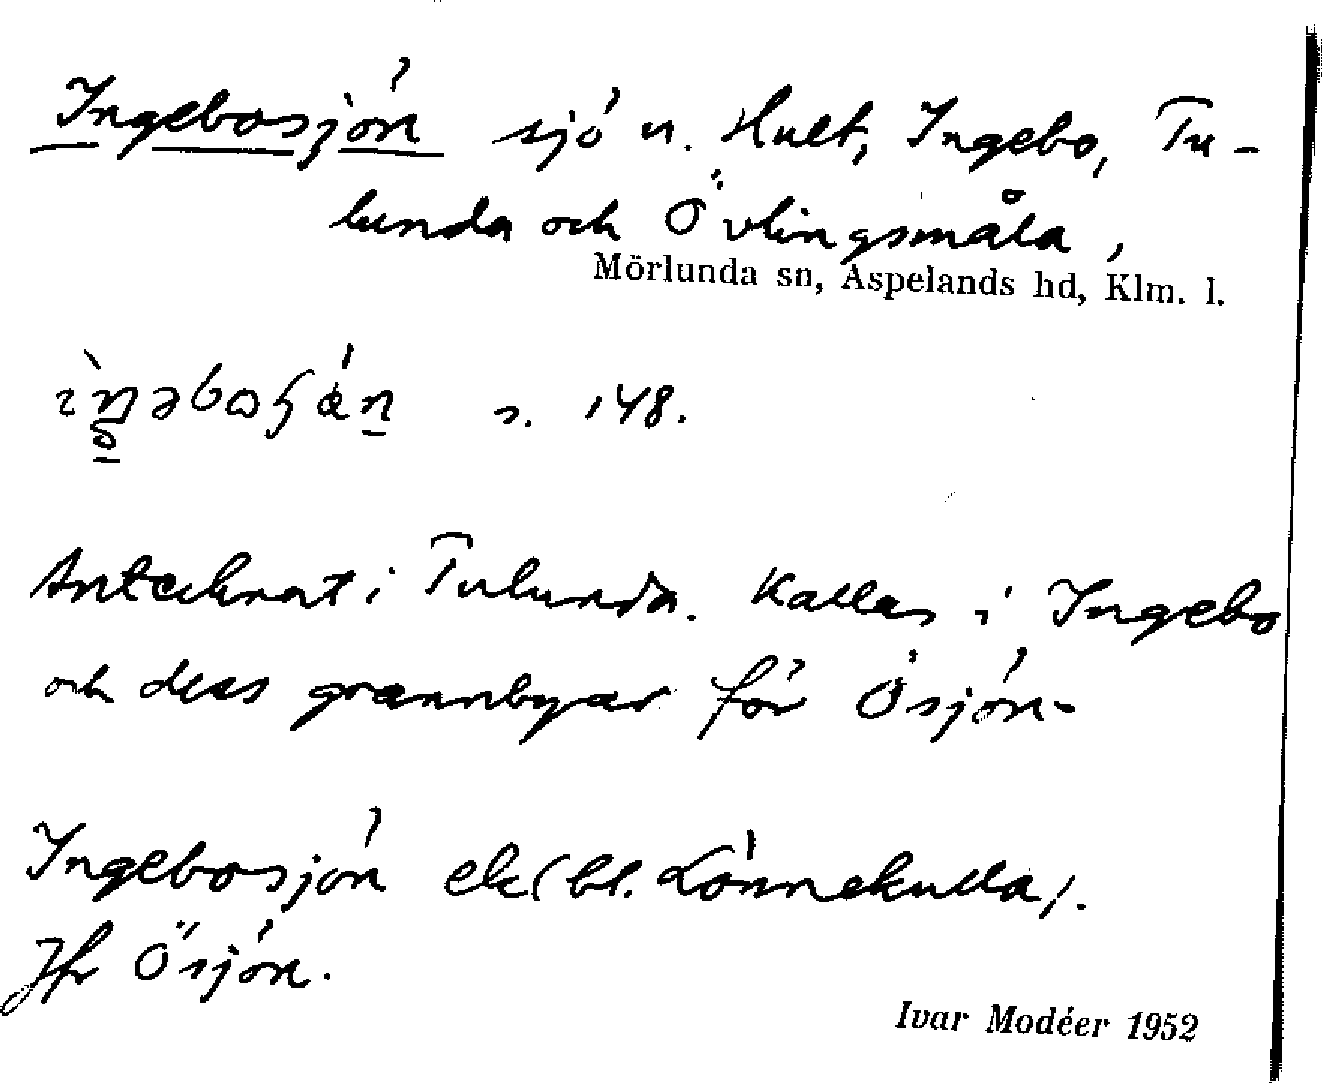 Ingebosjön sjö u. Hult, Ingebo, Tu-
lunda och Övlingsmåla,
Mörlunda sn, Aspelands hd, Klm. l.
s. 148.
Antecknat i Tulunda. Kallas i Ingebo
och dess grannbyar för Ösjön.
Ingebosjön ek (bl. Lönnekulla).
Jfr Ösjön.
Ivar Modéer 1952